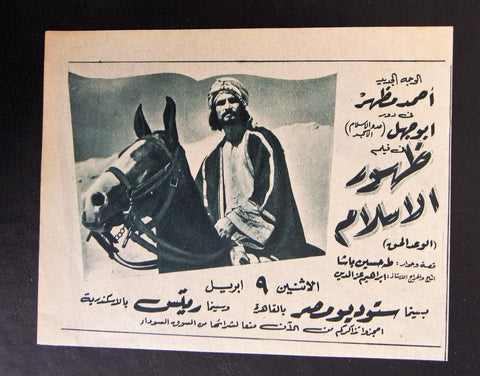 الوجه الجديد
أحمد مظهر
فى دور
ابو جهل (عدو الاسلام الأكبر)
فى فيلم
ظهور
الاسلام
(الوعد الحق)
قصة وحوار: طه حسين باشا
انتاج واخراج الاستاذ: ابراهيم عز الدين
الاثنين ٩ ابريل
بسينما ستوديو مصر بالقاهرة وسينما ريتس بالاسكندرية
احجزوا تذاكركم من الآن منعا لشرائها من السوق السوداء